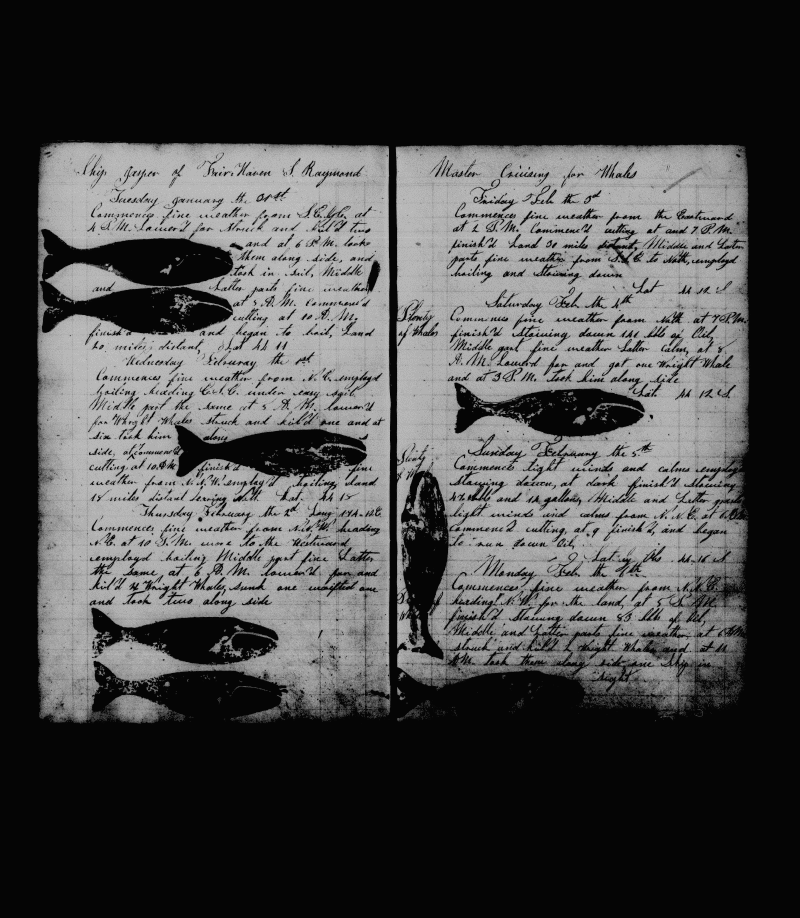 Ship Jasper of Fair Haven S. Raymond
Tuesday January the 31st
Commences fine weather from S.E. at
4 P.M. Lower'd for struck and kil'd two
and at 6 P.M. took
them along side, and
took in sail, Middle
and Latter parts fine weather
at 5 A.M. Commenc'd
cutting at 10 A.M.
finish'd and began to boil, Land
20 miles distant, Lat 44 11
Wednesday February the 1st
Commences fine weather from N.E. employd
boiling heading E.S.E. under easy sail
Middle part the same at 5 A.M. lower'd
for Wright Whales struck and kil'd one and at
six took him along
side, at commenc'd
cutting at 10 A.M. finish'd fine
weather from N.N.W. employ'd boiling, Land
18 miles distant Lat. 44 18
Thursday February the 2d Long 144-12E
Commences fine weather from N.W. heading
N.E. at 10 P.M. wore to the Westward
employd boiling Middle part fine Latter
the same at 5 A.M. lower'd for and
kil'd 4 Wright Whales sunk one waifted one
and took two along side
Master Cruising for Whales
Friday Feb the 3d
Commences fine weather from the Eastward
at 2 P.M. Commenc'd cutting at and 7 P.M.
finish'd Land 30 miles distant, Middle and Latter
parts fine weather from S.E. to Nth, employd
boiling and stowing down
Lat 44 12 S
Saturday Feb. the 4th
Plenty
of Whales
Commences fine weather from Nth at 7 P.M.
finish'd stowing down 141 bbls of Oil,
Middle part fine weather Latter calm, at 8
A.M. Lowerd for and got one Wright Whale
and at 3 P.M. took him along side
Lat. 44 12 S
Sunday February the 5th
Plenty
Commences light winds and calms employd
stowing down, at dark finish'd stowing
47 bbls and 14 gallons, Middle and Latter parts
light winds and calms from N.N.E. at
commenc'd cutting, at 9 finish'd, and began
to run down Oil,
Lat by Obs 44-16 S
Monday Feb. the 6th
Commences fine weather from N.N.E.
heading N.W. for the land, at 5 P.M.
finish'd stowing down 83 bbls of Oil,
Middle and Latter parts fine weather, at
struck and kil'd 2 Wright Whales and at 11
A.M. took them along side one Ship in
sight